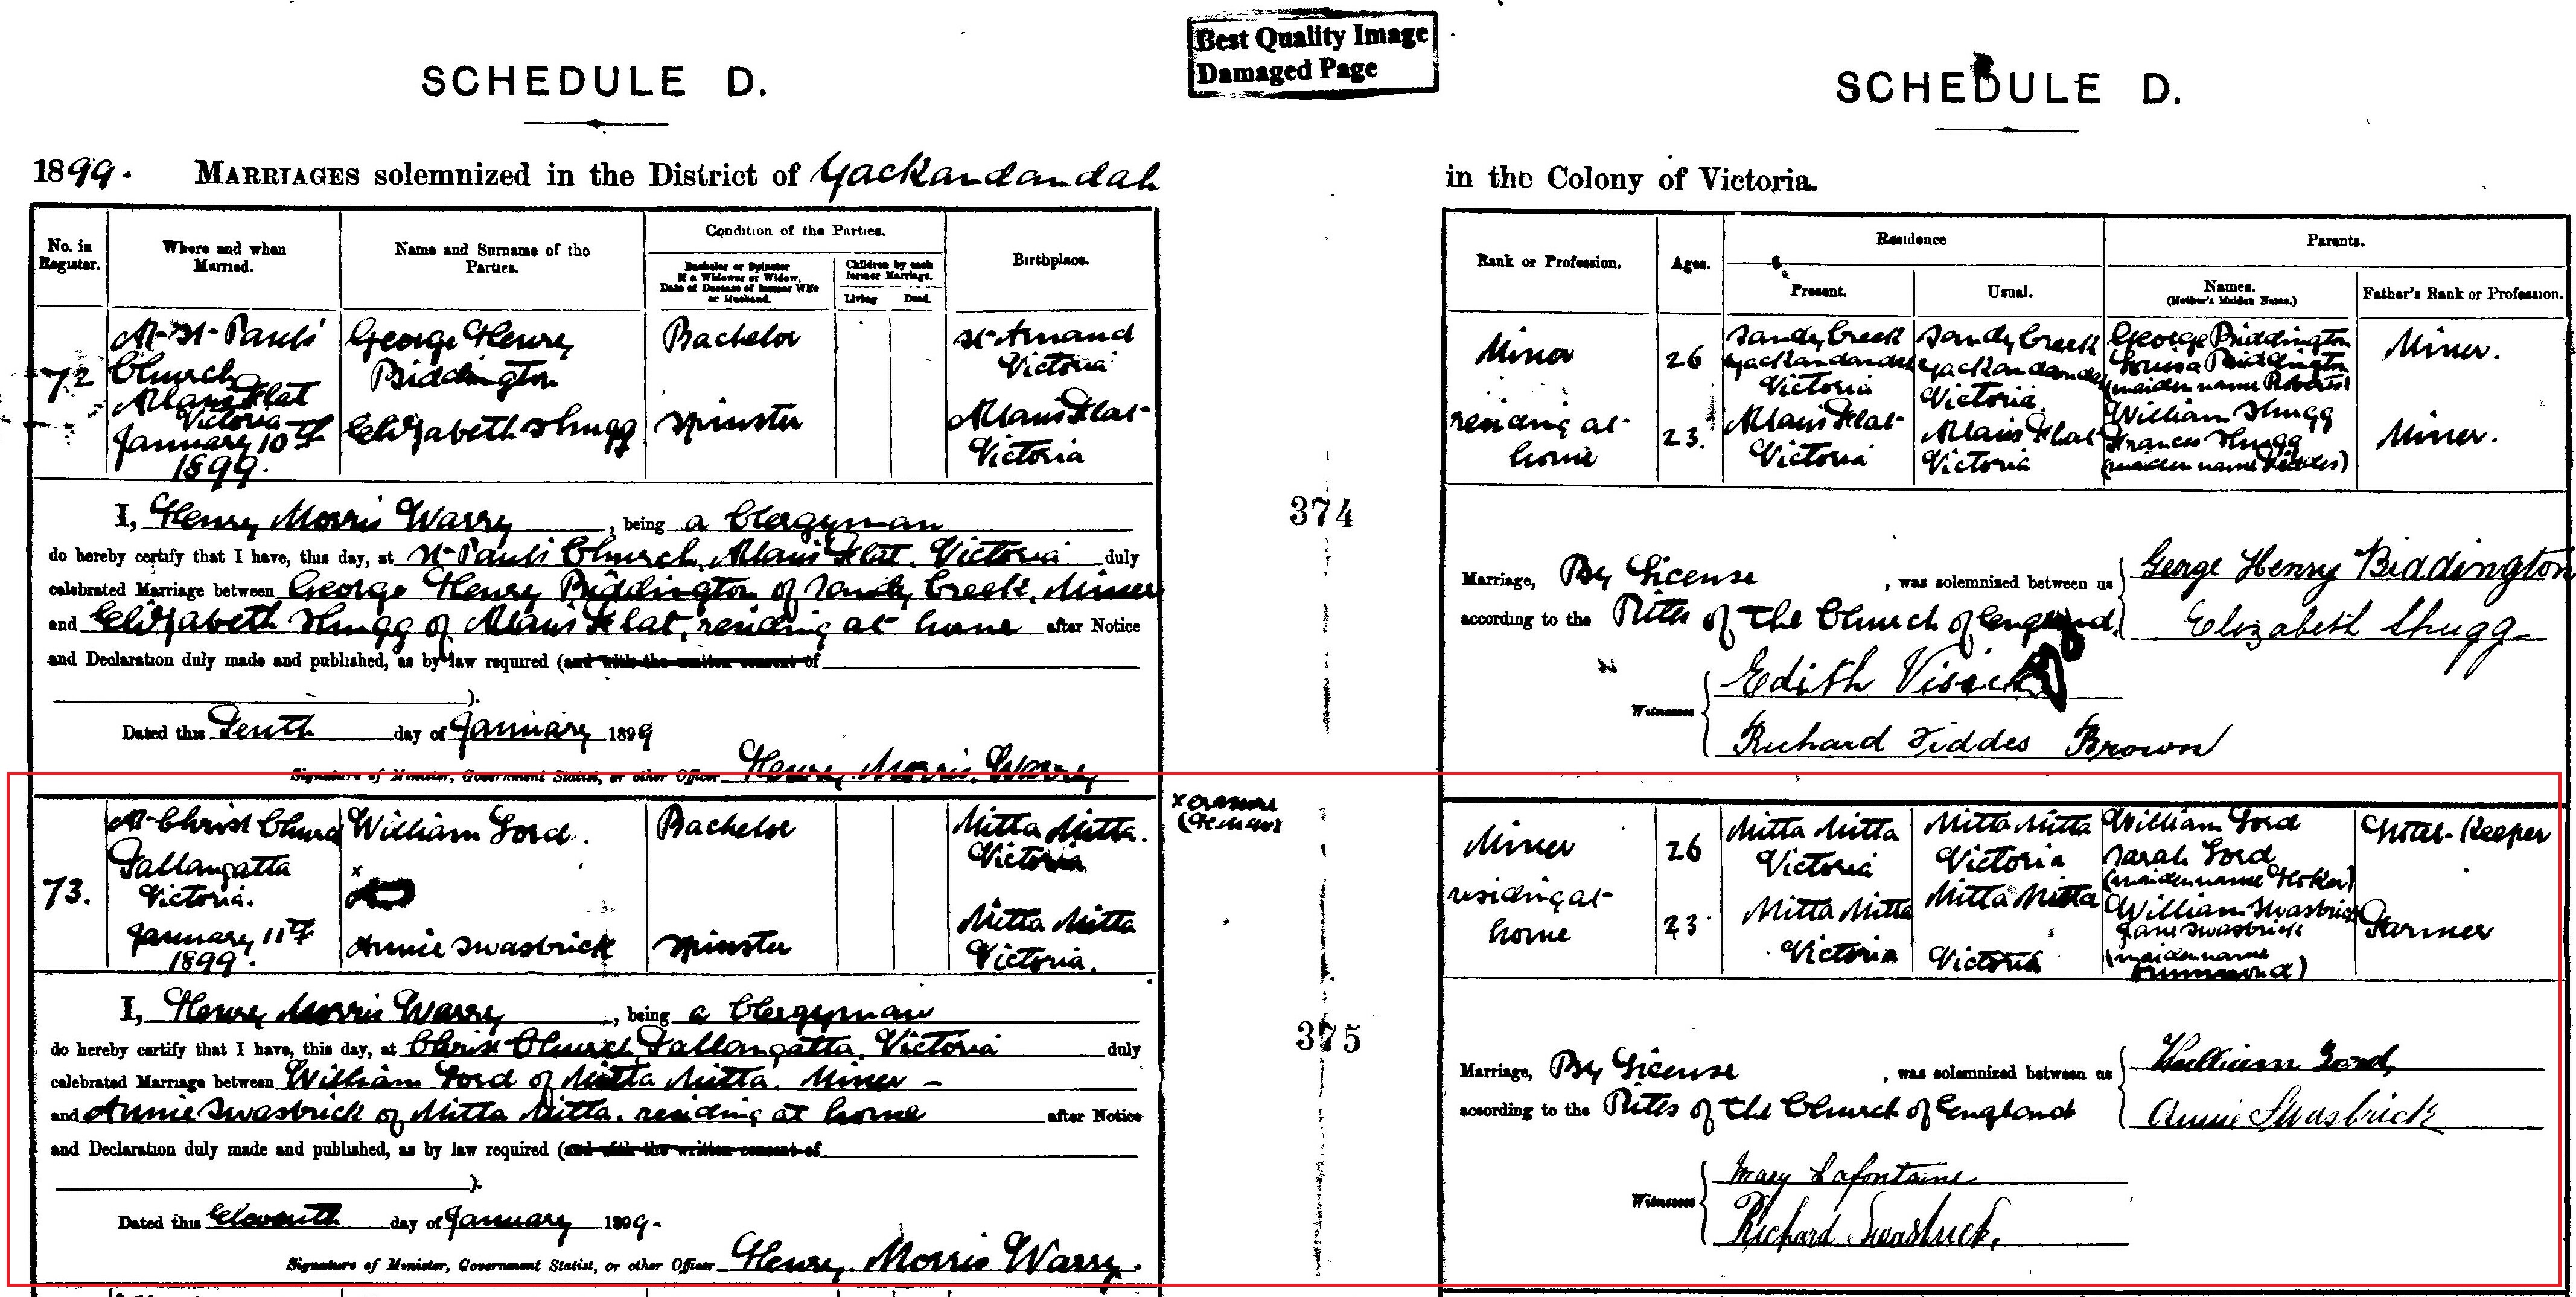 Best Quality Image
Damaged Page
SCHEDULE D.
SCHEDULE D.
1899. MARRIAGES solemnized in the District of Yackandandah
in the Colony of Victoria.
No. in Register.
Where and when Married.
Name and Surname of the Parties.
Condition of the Parties.
Bachelor or Spinster
If a Widower or Widow,
Date of Decease of former Wife
or Husband.
Children by each
former Marriage.
Living Dead.
Birthplace.
Rank or Profession.
Ages.
Residence
Present. Usual.
Parents.
Names.
(Mother's Maiden Name.)
Father's Rank or Profession.
72
At St Paul's
Church
Allans Flat
Victoria
January 10th
1899.
George Henry
Biddington
Elizabeth Shugg
Bachelor
Spinster
St Arnaud
Victoria
Allans Flat
Victoria
Miner
residing at
home
26
23.
Sandy Creek
Yackandandah
Victoria
Allans Flat
Victoria
Sandy Creek
Yackandandah
Victoria
Allans Flat
Victoria
George Biddington
Louisa Biddington
(maiden name Roberts)
William Shugg
Frances Shugg
(maiden name Fiddes)
Miner.
Miner.
I, Henry Morris Warry, being a Clergyman
do hereby certify that I have, this day, at St Paul's Church, Allans Flat, Victoria duly
celebrated Marriage between George Henry Biddington of Sandy Creek, Miner
and Elizabeth Shugg of Allans Flat, residing at home after Notice
and Declaration duly made and published, as by law required (and with the written consent of
).
Dated this Tenth day of January 1899
Signature of Minister, Government Statist, or other Officer Henry Morris Warry
374
Marriage, By License, was solemnized between us
according to the Rites of the Church of England.
George Henry Biddington
Elizabeth Shugg
Witnesses
Edith Visick
Richard Fiddes Brown
73.
At Christ Church
Tallangatta
Victoria.
January 11th
1899.
William Lord.
x
Annie Swasbrick
Bachelor
Spinster
Mitta Mitta.
Victoria
Mitta Mitta
Victoria.
x erasure
Miner
residing at
home
26
23
Mitta Mitta
Victoria
Mitta Mitta
Victoria
Mitta Mitta
Victoria
Mitta Mitta
Victoria
William Lord
Sarah Lord
(maiden name
William Swasbrick
Jane Swasbrick
(maiden name
Drummond)
Hotel-Keeper
Farmer
I, Henry Morris Warry, being a Clergyman
do hereby certify that I have, this day, at Christ Church, Tallangatta, Victoria duly
celebrated Marriage between William Lord of Mitta Mitta. Miner -
and Annie Swasbrick of Mitta Mitta. residing at home after Notice
and Declaration duly made and published, as by law required (and with the written consent of
).
Dated this Eleventh day of January 1899.
Signature of Minister, Government Statist, or other Officer Henry Morris Warry.
375
Marriage, By License, was solemnized between us
according to the Rites of the Church of England
William Lord,
Annie Swasbrick
Witnesses
Mary Lafontaine
Richard Swasbrick.